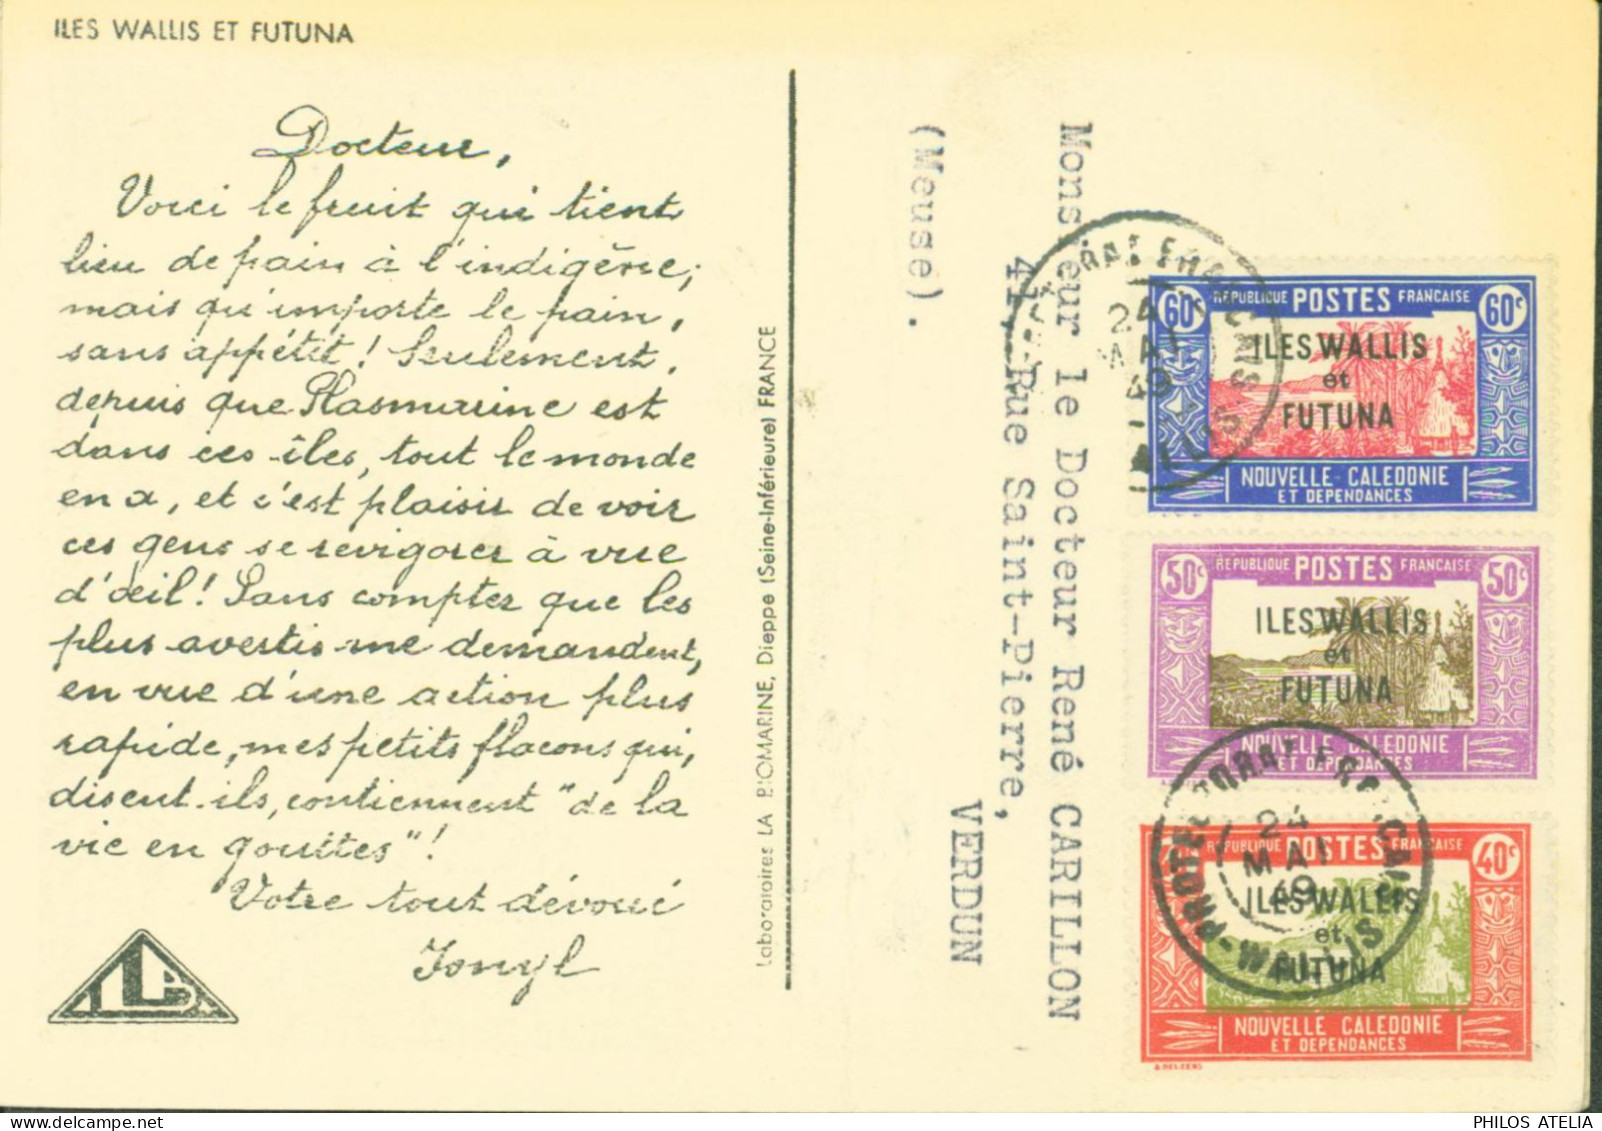 ILES WALLIS ET FUTUNA
Docteur,
Voici le fruit qui tient
lieu de pain à l'indigène;
mais qu'importe le pain,
sans appétit! Seulement,
depuis que Plasmarine est
dans ces îles, tout le monde
en a, et c'est plaisir de voir
ces gens se revigorer à vue
d'œil! Sans compter que les
plus avertis me demandent,
en vue d'une action plus
rapide, mes petits flacons qui,
disent-ils, contiennent "de la
vie en gouttes"!
Votre tout dévoué
Ionyl
Laboratoires LA BIOMARINE, Dieppe (Seine-Inférieure) FRANCE
Monsieur le Docteur René CARILLON
47, Rue Saint-Pierre,
VERDUN
(Meuse).
60c REPUBLIQUE POSTES FRANCAISE 60c
ILES WALLIS
et
FUTUNA
NOUVELLE-CALEDONIE
ET DEPENDANCES
24
MAI
49
WALLIS
50c REPUBLIQUE POSTES FRANCAISE 50c
ILES WALLIS
et
FUTUNA
NOUVELLE CALEDONIE
ET DEPENDANCES
PROTECTORAT FRANÇAIS
24
MAI
49
WALLIS
REPUBLIQUE POSTES FRANCAISE 40c
ILES WALLIS
et
FUTUNA
NOUVELLE CALEDONIE
ET DEPENDANCES
PHILOS ATELIA